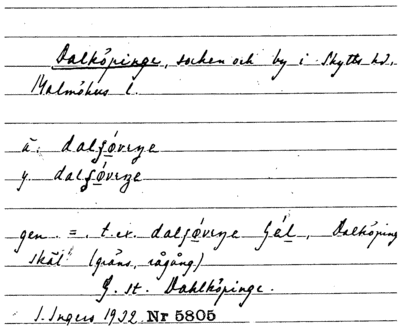 Dalköpinge, socken och by i Skytts hd,
Malmöhus l.
ä. dalʃøvɪŋe
y. dalʃøvɪŋe
gen. =. t.ex. dalʃøvɪŋe ʃäl, Dalköpinge
skäl (gräns, rågång)
G. st. Dahlköpinge.
I. Ingers 1932. Nr 5805